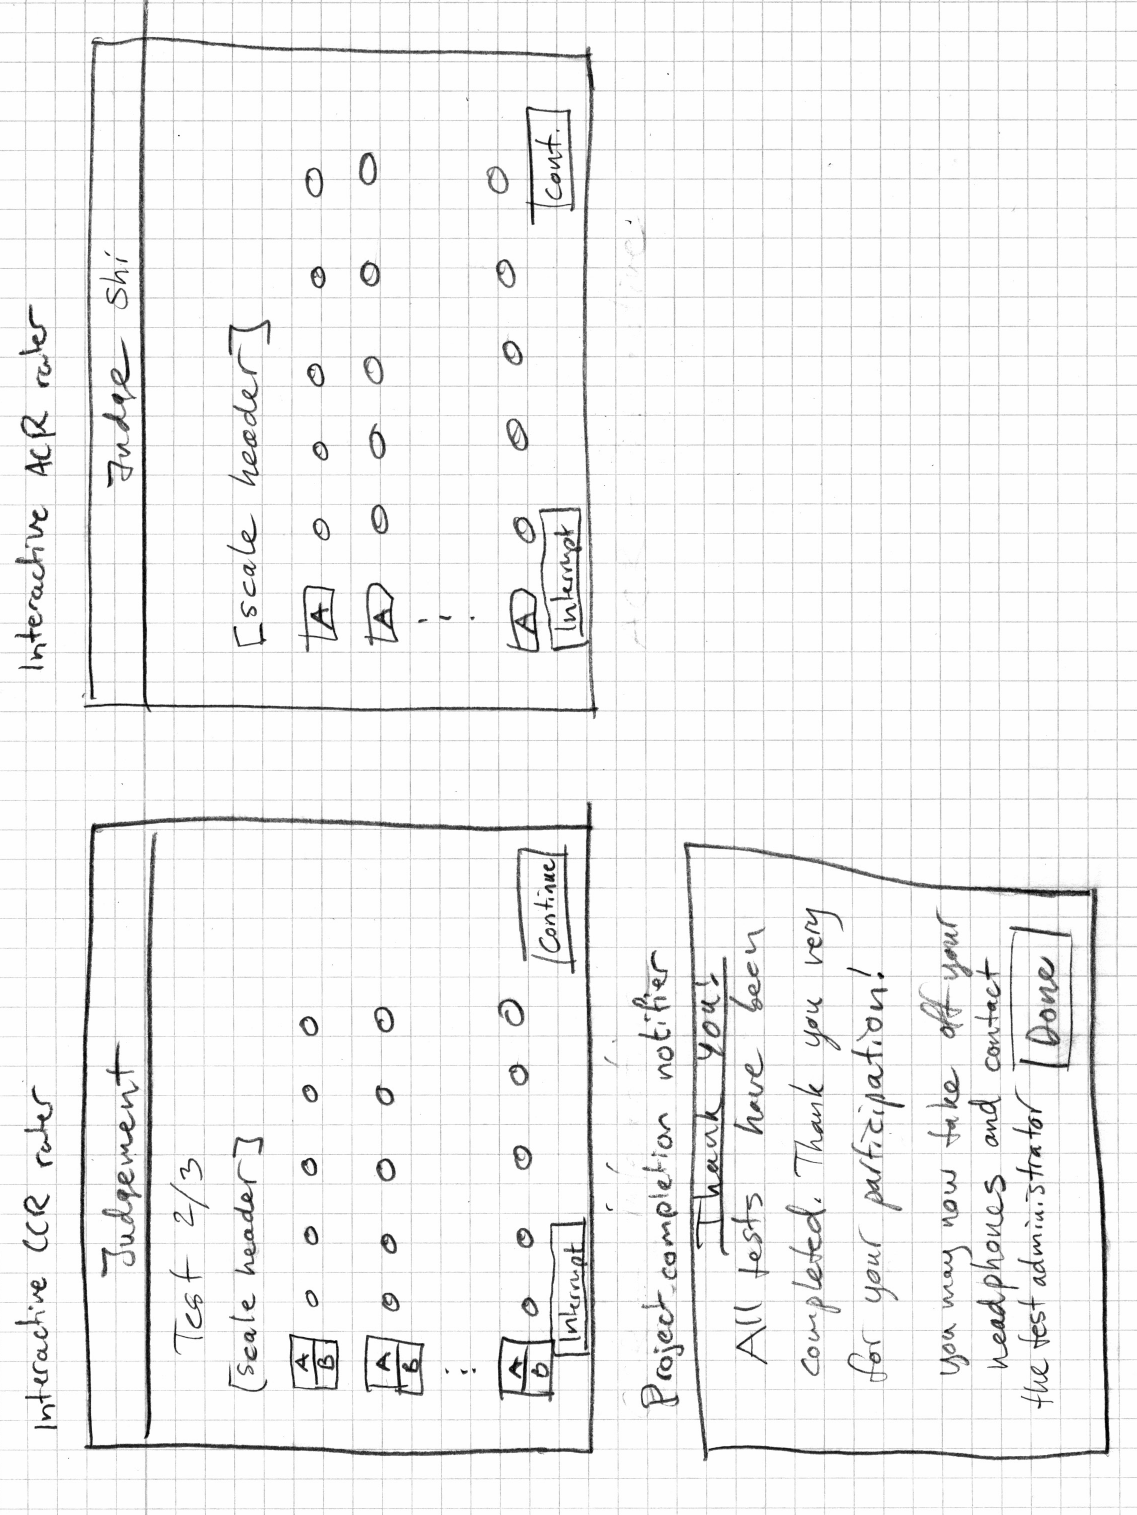 Interactive CCR rater
Judgement
Test 2/3
[scale header]
A
B
A
B
⋮
A
B
Interrupt
Continue
Interactive ACR rater
Judge Shi
[scale header]
A
A
⋮
A
Interrupt
Cont.
Project-completion notifier
Thank you!
All tests have been
completed. Thank you very
for your participation!
you may now take off your
headphones and contact
the test administrator
Done